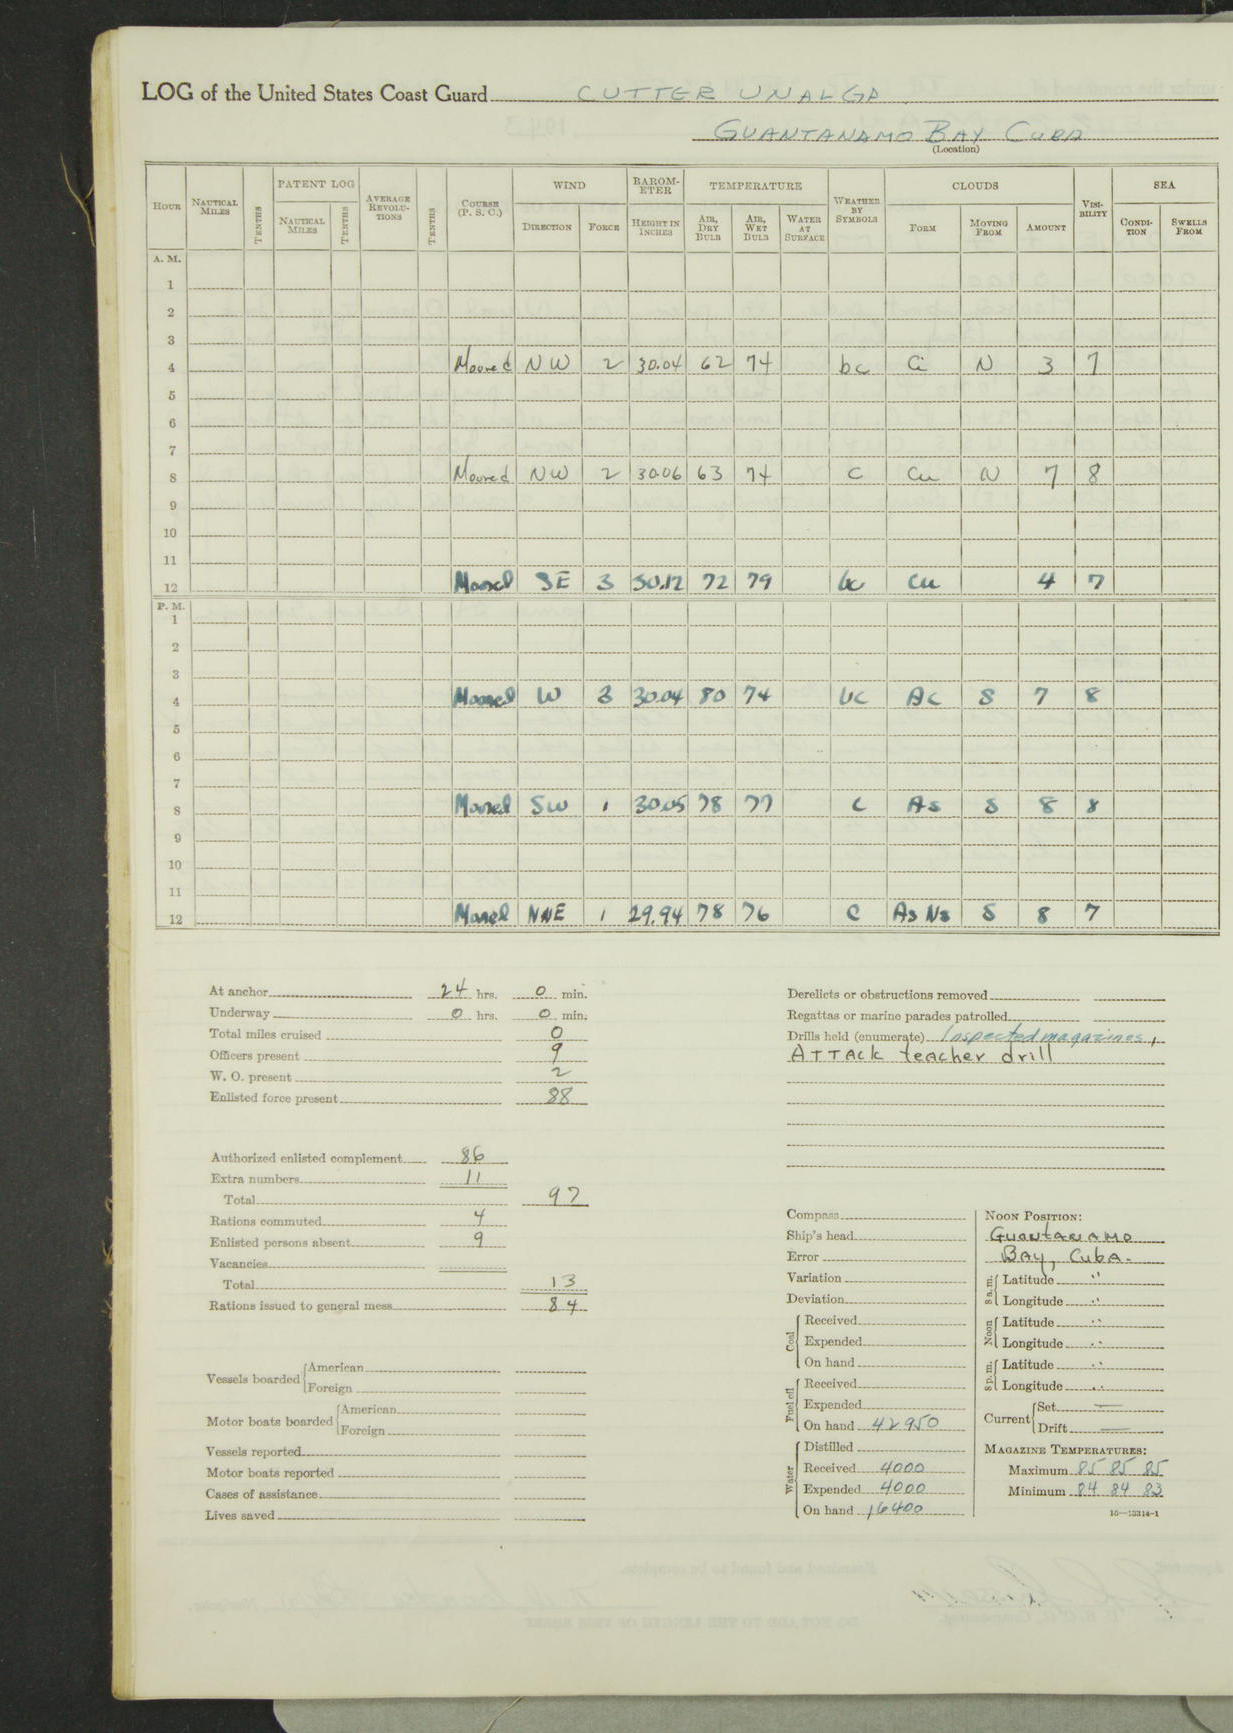 LOG of the United States Coast Guard CUTTER UNALGA
GUANTANAMO BAY CUBA
(Location)
HOUR NAUTICAL MILES TENTHS PATENT LOG NAUTICAL MILES TENTHS AVERAGE REVOLUTIONS TENTHS COURSE (P. S. C.) WIND DIRECTION FORCE BAROMETER HEIGHT IN INCHES TEMPERATURE AIR, DRY BULB AIR, WET BULB WATER AT SURFACE WEATHER BY SYMBOLS CLOUDS FORM MOVING FROM AMOUNT VISIBILITY SEA CONDITION SWELLS FROM
A. M.
1
2
3
4 Moored NW 2 30.04 62 74 bc Ci N 3 7
5
6
7
8 Moored NW 2 30.06 63 74 C Cu N 7 8
9
10
11
12 Moored SE 3 30.12 72 79 bc Cu 4 7
P. M.
1
2
3
4 Moored W 3 30.04 80 74 bc Ac S 7 8
5
6
7
8 Moored SW 1 30.05 78 77 C As S 8 8
9
10
11
12 Moored NNE 1 29.94 78 76 C As Ns S 8 7
At anchor 24 hrs. 0 min.
Underway 0 hrs. 0 min.
Total miles cruised 0
Officers present 9
W. O. present 2
Enlisted force present 88
Authorized enlisted complement 86
Extra numbers 11
Total 97
Rations commuted 4
Enlisted persons absent 9
Vacancies
Total 13
Rations issued to general mess 84
Vessels boarded American
Foreign
Motor boats boarded American
Foreign
Vessels reported
Motor boats reported
Cases of assistance
Lives saved
Derelicts or obstructions removed
Regattas or marine parades patrolled
Drills held (enumerate) Inspected magazines,
ATTACK teacher drill
Compass
Ship's head
Error
Variation
Deviation
Coal Received
Expended
On hand
Fuel oil Received
Expended
On hand 42950
Water Distilled
Received 4000
Expended 4000
On hand 16400
NOON POSITION:
GUANTANAMO
BAY, CUBA.
8 a.m. Latitude "
Longitude "
Noon Latitude "
Longitude "
8 p.m. Latitude "
Longitude "
Current Set —
Drift —
MAGAZINE TEMPERATURES:
Maximum 85 85 85
Minimum 84 84 83
16—13314-1